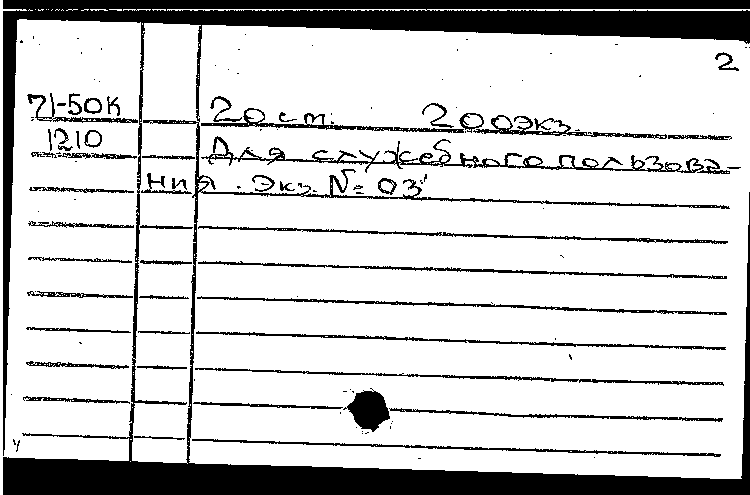 2
71-50К 20 ст. 200экз.
1210 Для служебного пользова-
ния. Экз. № 03